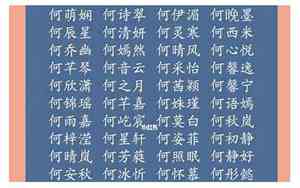 何萌娴 何诗翠 何伊湄 何晚墨
何辰星 何清妍 何灵寒 何西米
何乔幽 何嫣然 何晴风 何心悦
何芊琴 何音云 何采怡 何馨逸
何欣潇 何之月 何茜颖 何馨宁
何锦瑶 何芊嘉 何姝瑾 何语嫣
何雨嘉 何屹宸 何莫白 何秋岚
何梓滢 何星轩 何姿菲 何初静
何晴岚 何芳蕤 何照眠 何静好
何安秋 何冰忻 何怀慕 何彤懿